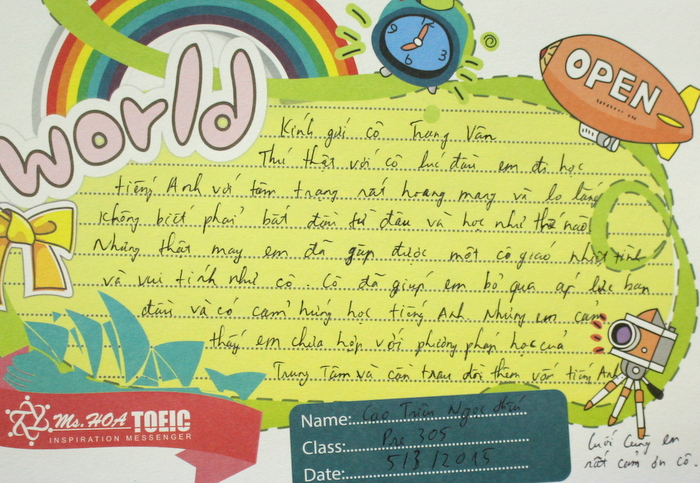 world
OPEN
Kính gửi cô Trang Vân
Thú thật với cô lúc đầu em đi học
tiếng Anh với tâm trạng rất hoang mang và lo lắng
không biết phải bắt đầu từ đâu và học như thế nào
Nhưng thật may em đã gặp được một cô giáo nhiệt tình
và vui tính như cô Cô đã giúp em bỏ qua áp lực ban
đầu và có cảm hứng học tiếng Anh Nhưng em cảm
thấy em chưa hợp với phương pháp học của
Trung Tâm và cần trau dồi thêm vốn tiếng Anh
Cuối cùng em
rất cảm ơn cô.
Ms. HOA TOEIC
INSPIRATION MESSENGER
Name: Cao Trần Ngọc
Class: Pre 305
Date: 5/3/2015